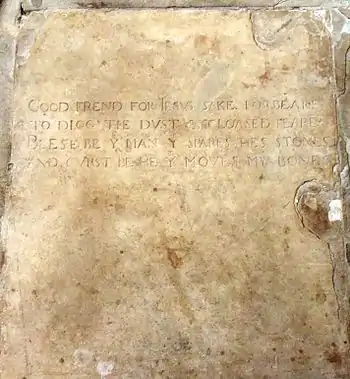 GOOD FREND FOR JESVS SAKE FORBEARE,
TO DIGG THE DVST ENCLOASED HEARE.
BLESE BE Y MAN Y SPARES THES STONES,
AND CVRST BE HE Y MOVES MY BONES.